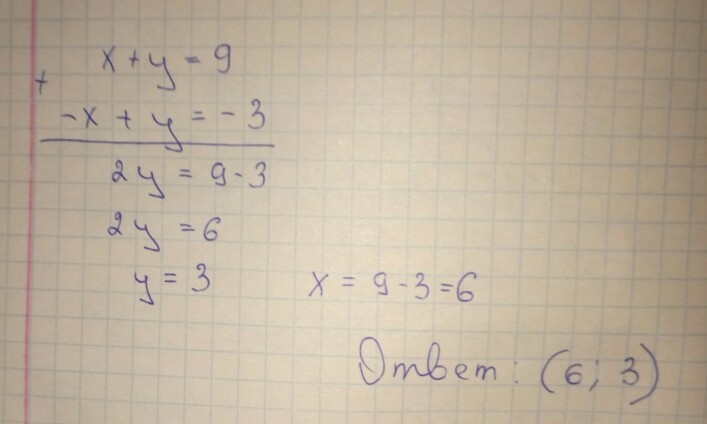 x + y = 9
+
-x + y = -3
2y = 9-3
2y = 6
y = 3
x = 9-3=6
Ответ: (6; 3)